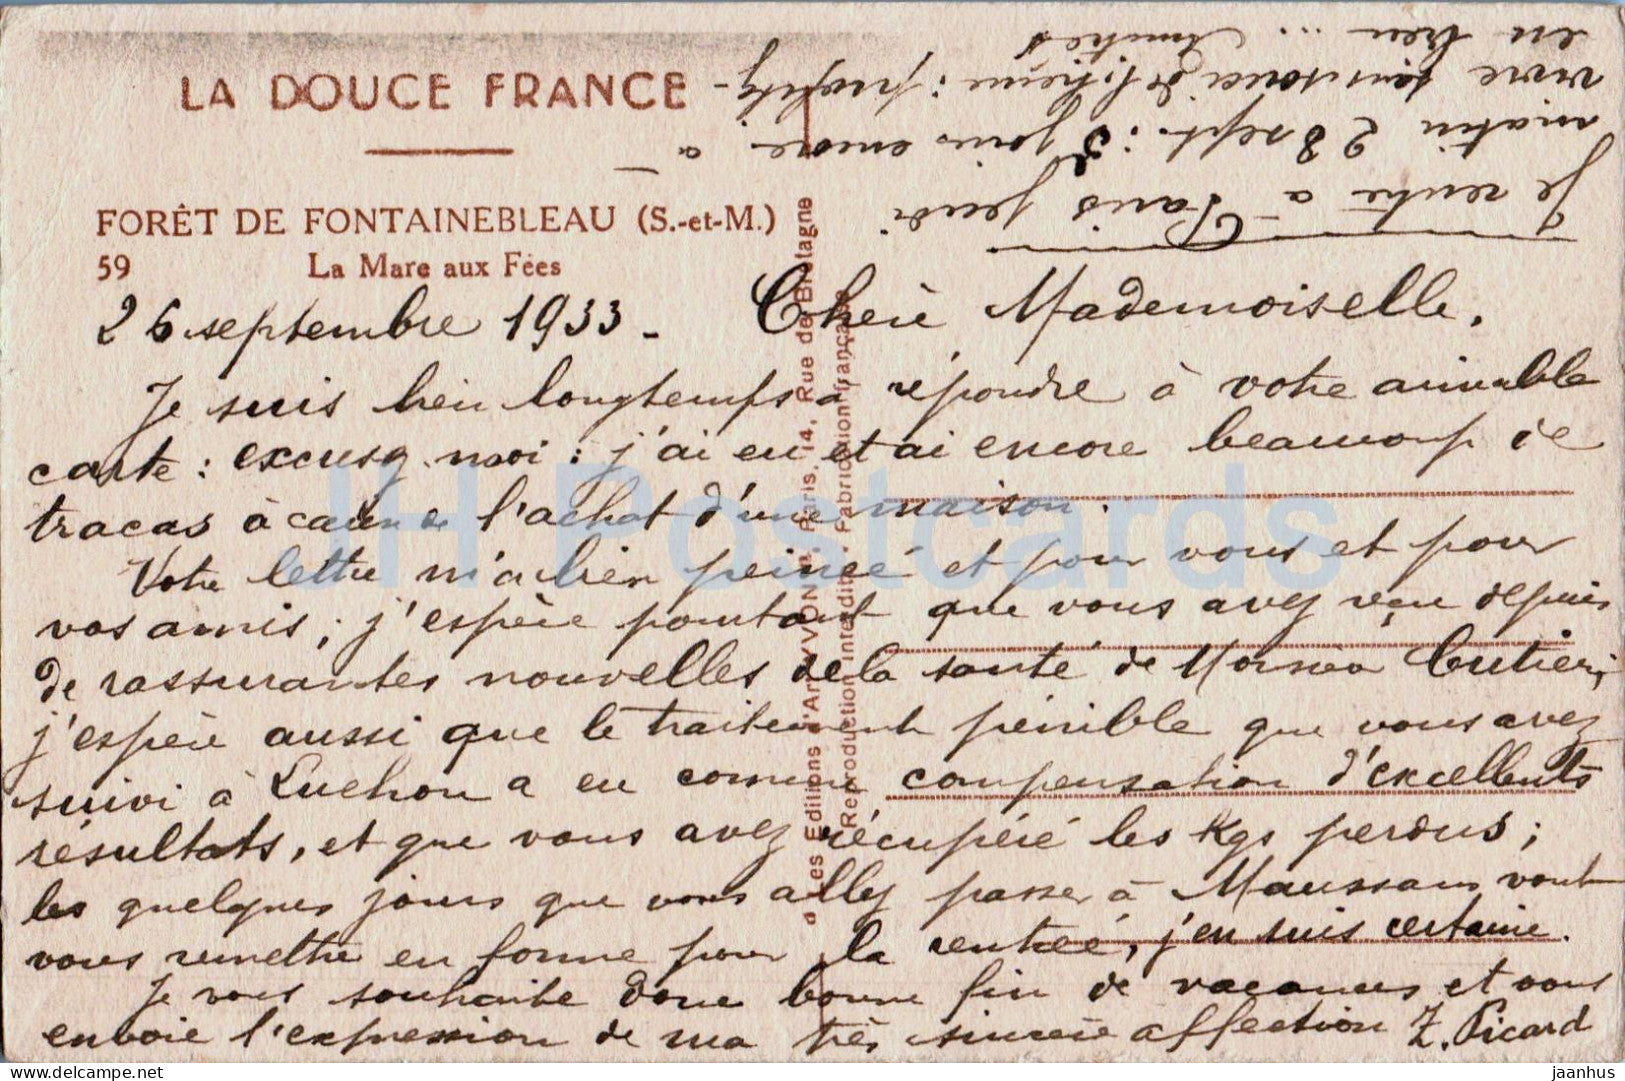 LA DOUCE FRANCE
FORÊT DE FONTAINEBLEAU (S.-et-M.)
59 La Mare aux Fées
26 septembre 1933 - Chère Mademoiselle,
Je suis bien longtemps à répondre à votre aimable
carte : excusez-moi : j'ai eu et ai encore beaucoup de
tracas à cause de l'achat d'une maison.
Votre lettre m'a bien peinée et pour vous et pour
vos amis ; j'espère pourtant que vous avez reçu depuis
de rassurantes nouvelles de la santé de
j'espère aussi que le traitement pénible que vous avez
suivi à Luchon a eu comme compensation d'excellents
résultats, et que vous avez récupéré les Kgs perdus ;
les quelques jours que vous allez passer à Maussans vont
vous remettre en forme pour la rentrée, j'en suis certaine.
Je vous souhaite donc bonne fin de vacances et vous
envoie l'expression de ma très sincère affection Z. Picard
Je rentre à Paris jeudi
matin 28 sept. : 3 jours encore à
vivre sans souci de l'heure : profitez-
en bien ... Amitiés
Les Editions d'Art YVON, Paris, 14, Rue de Bretagne
Reproduction interdite. Fabrication française
JH Postcards
jaanhus www.delcampe.net